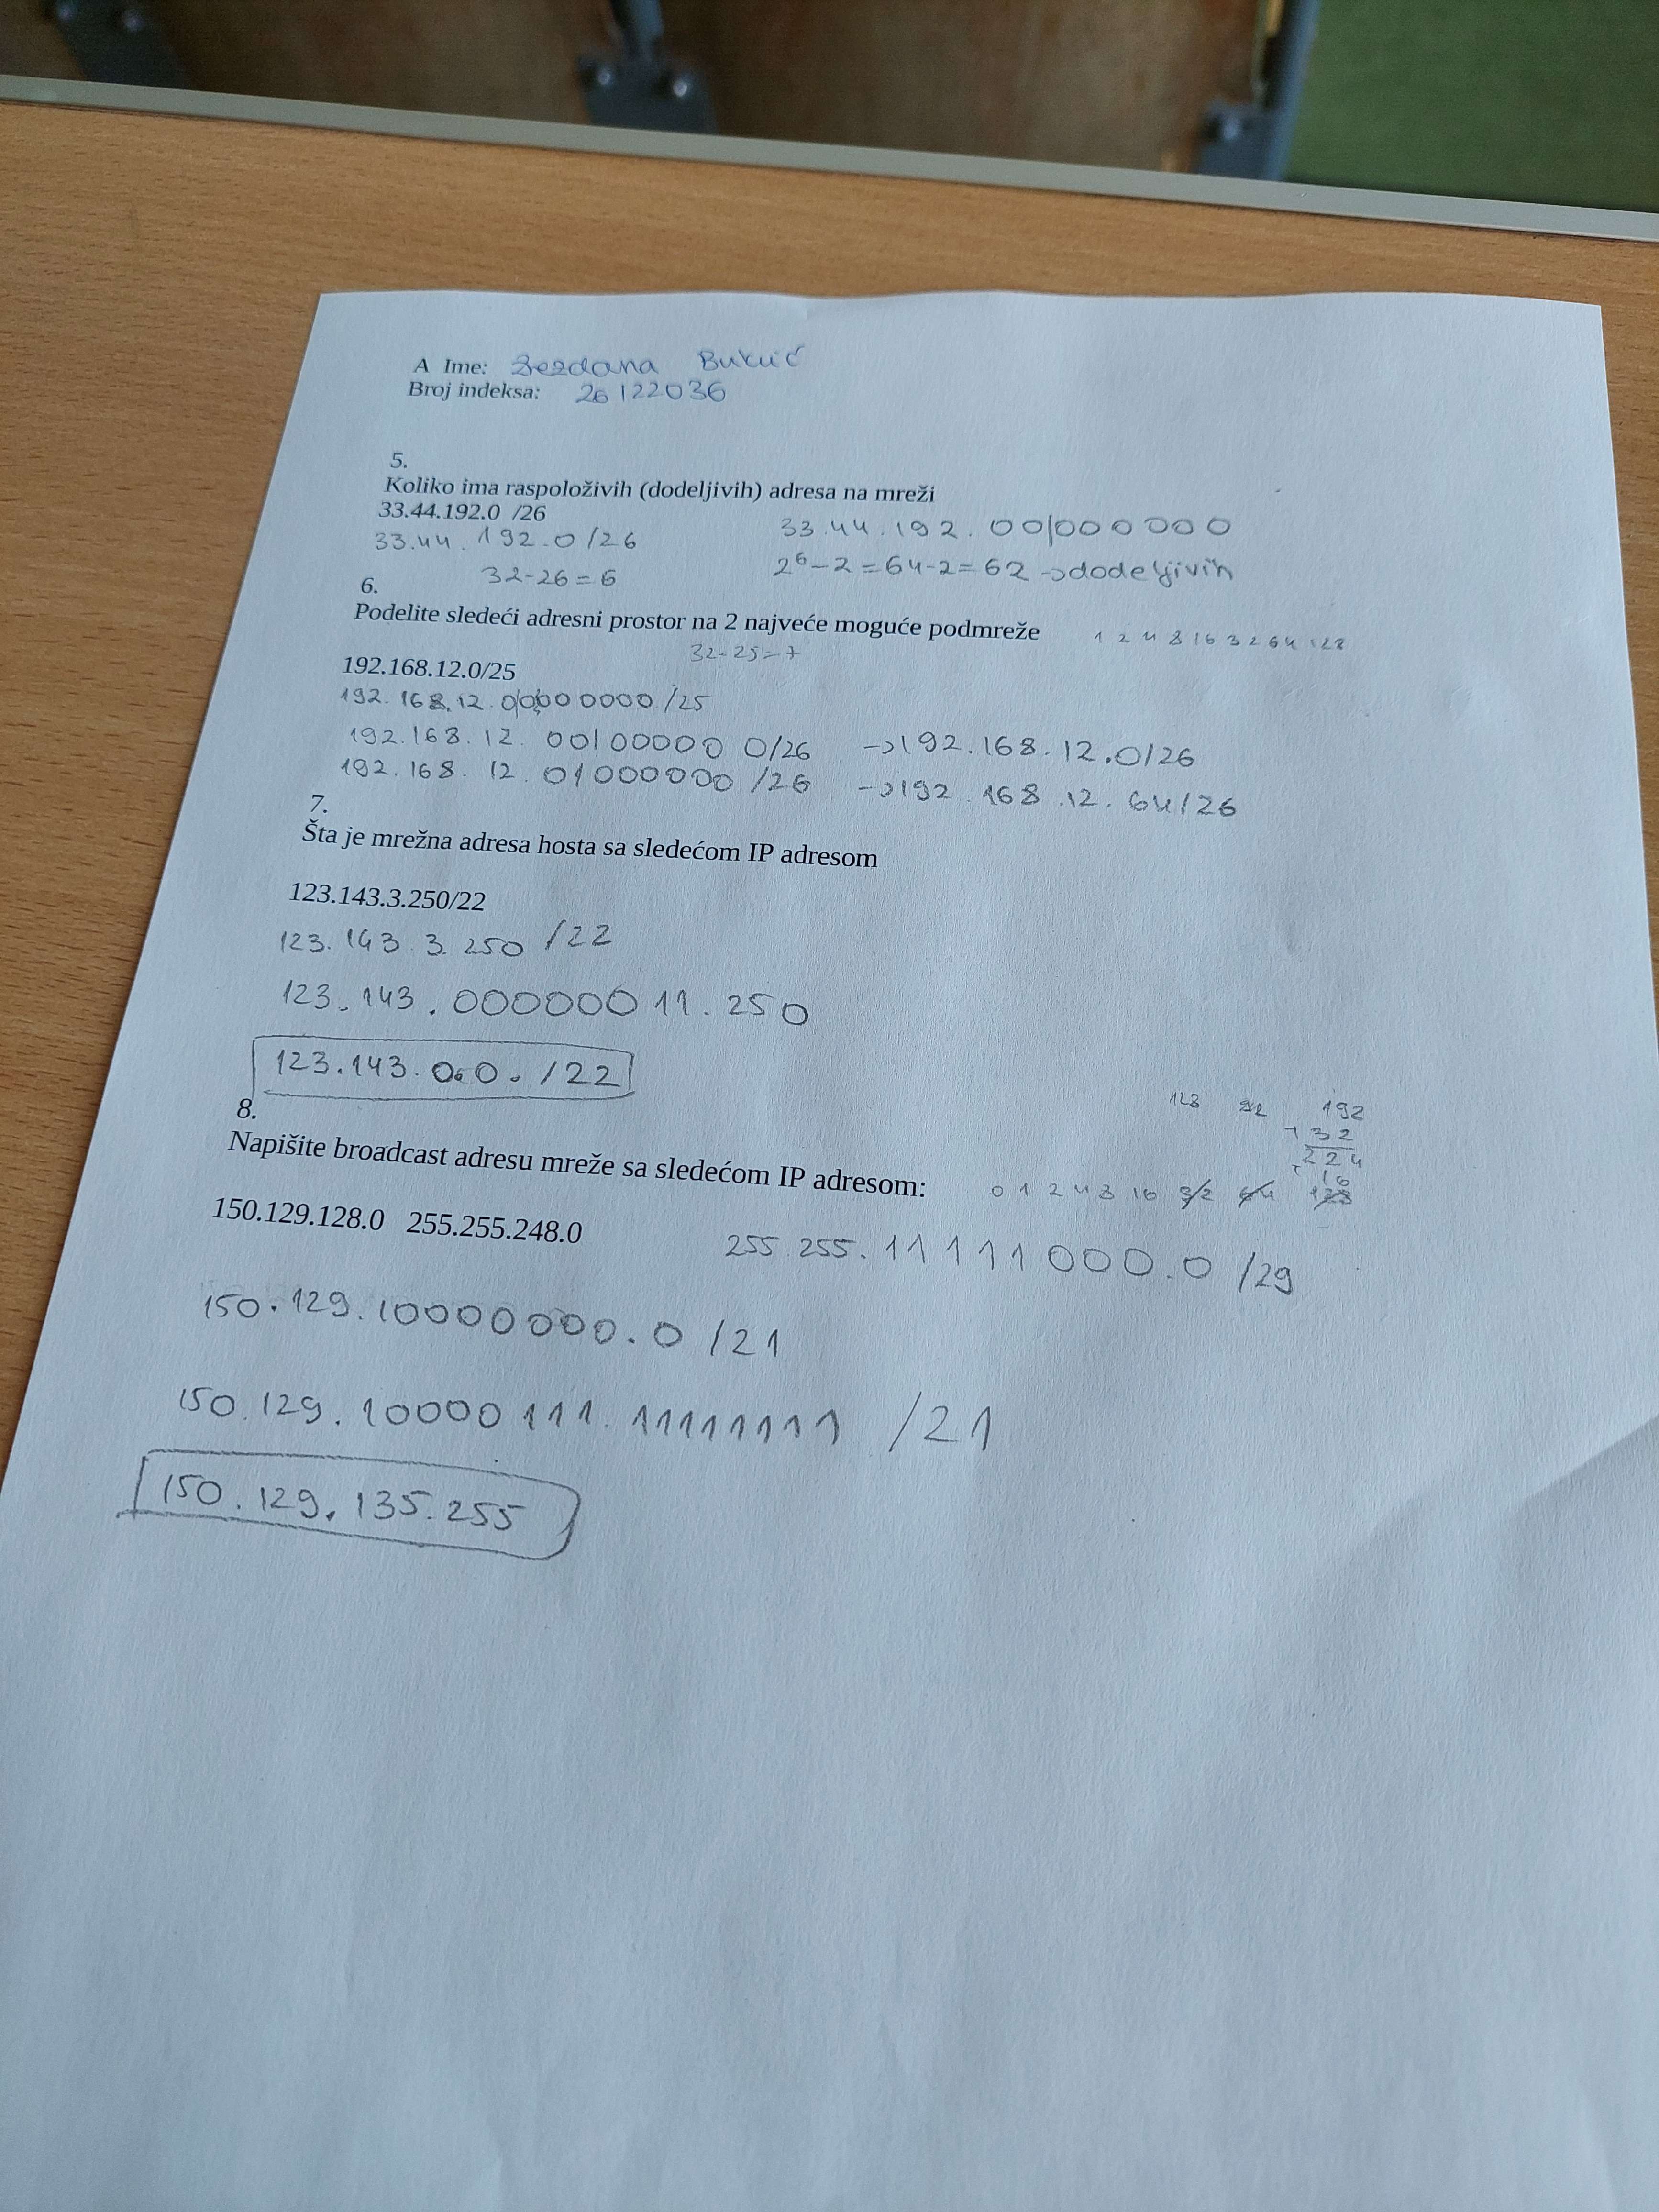 A Ime: Zvezdana Bukvić
Broj indeksa: 26122036
5.
Koliko ima raspoloživih (dodeljivih) adresa na mreži
33.44.192.0 /26
33.44.192.0/26
33.44.192.00|000000
32-26=6
2⁶-2=64-2=62 →dodeljivih
6.
Podelite sledeći adresni prostor na 2 najveće moguće podmreže
1 2 4 8 16 32 64 128
32-25=7
192.168.12.0/25
192.168.12.00000000/25
192.168.12.00|000000/26 →192.168.12.0/26
192.168.12.01000000/26 →192.168.12.64/26
7.
Šta je mrežna adresa hosta sa sledećom IP adresom
123.143.3.250/22
123.143.3.250 /22
123.143.00000011.250
123.143.0.0./22
8.
Napišite broadcast adresu mreže sa sledećom IP adresom:
128
192
+32
224
16
0 1 2 4 8 16 32 64 128
150.129.128.0 255.255.248.0
255.255.11111000.0 /29
150.129.10000000.0 /21
150.129.10000111.11111111 /21
150.129.135.255